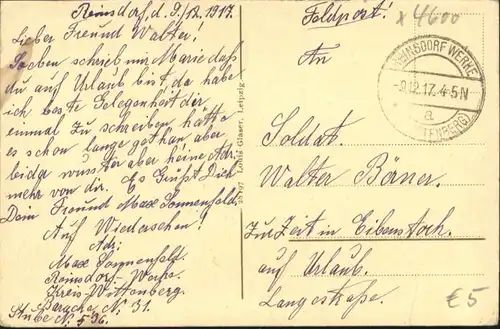 Reinsdorf, d. 9/12.1917.
Lieber Freund Walter!
Soeben schrieb mir Marie daß
du auf Urlaub bist da habe
ich beste Gelegenheit dir
einmal zu schreiben hätte
es schon lange gethan aber
leider wusste aber keine Adr.
mehr von dir. Es Grüßt Dich
Dein Freund Max Sonnenfeld,
Auf Wiedersehen!
Adr:
Max Sonnenfeld.
Reinsdorf-
Kreis-Wittenberg.
Barache N. 31.
Stube N. 536.
Louis Glaser, Leipzig
Feldpost!
x 4600
REINSDORF WERKE
-9.12.17. 4-5 N
a
TENBERG)
An
Soldat.
Walter Börner.
Zur Zeit in Eibenstock.
auf Urlaub.
Langestraße.
€5